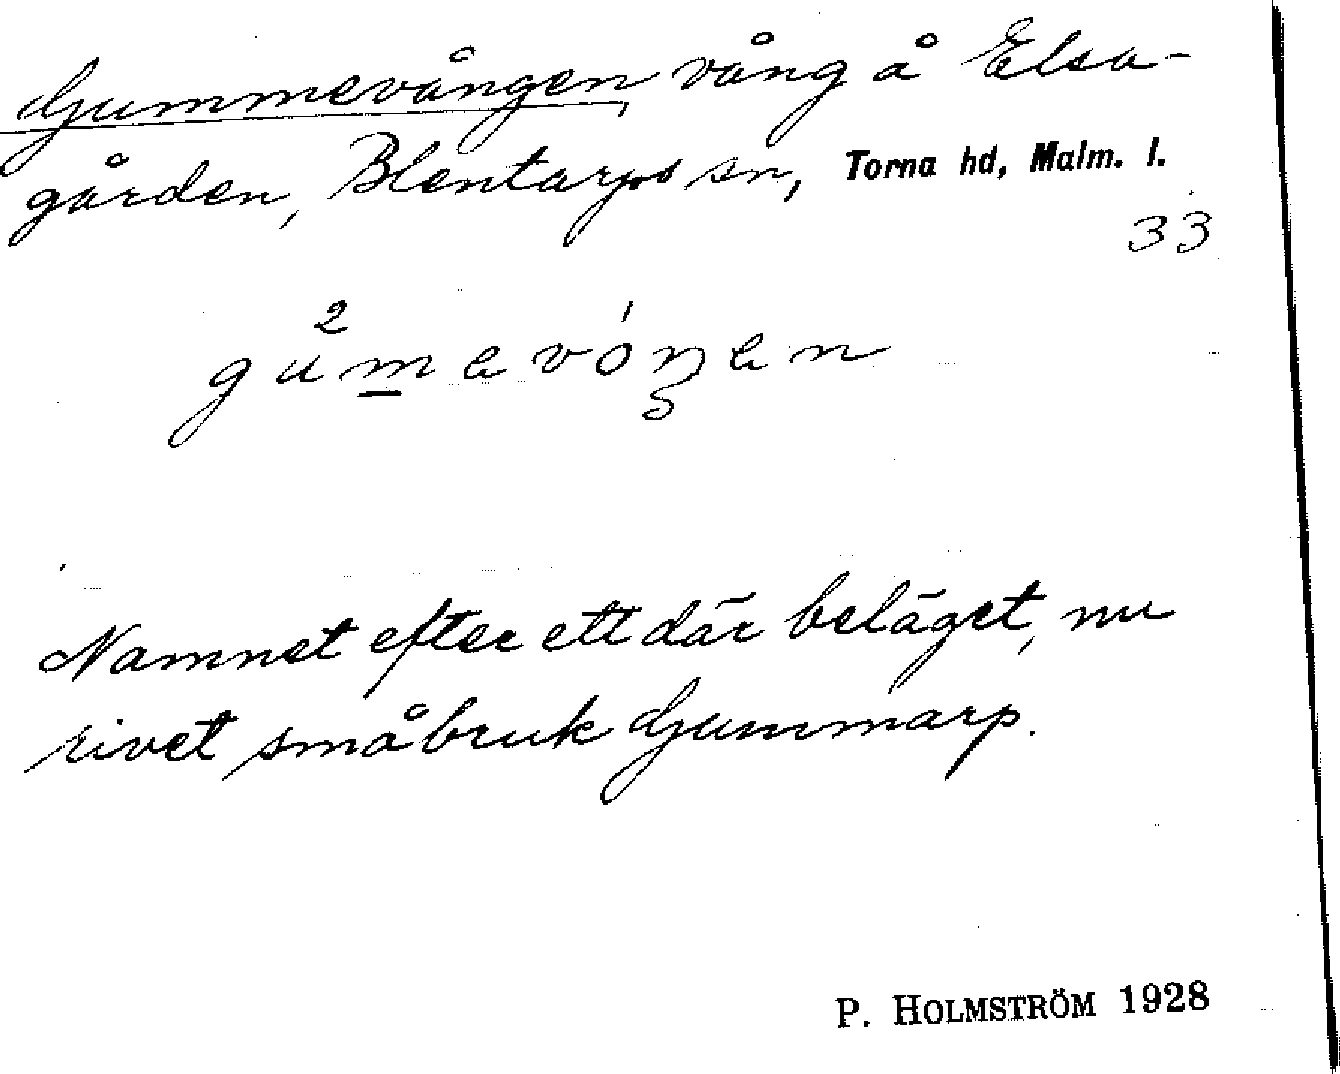 Gummevången, vång å Elsa-
gården, Blentarps sn, Torna hd, Malm. l.
33
Namnet efter ett där beläget, nu
rivet småbruk Gummarp.
P. HOLMSTRÖM 1928